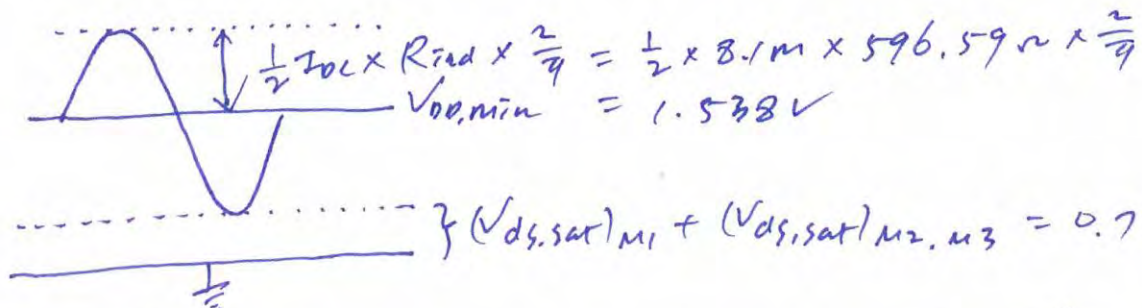 ½ IDC × Rind × 2/π = ½ × 8.1m × 596.59Ω × 2/π
VDD,min = 1.538V
} (Vds,sat)M1 + (Vds,sat)M2,M3 = 0.7